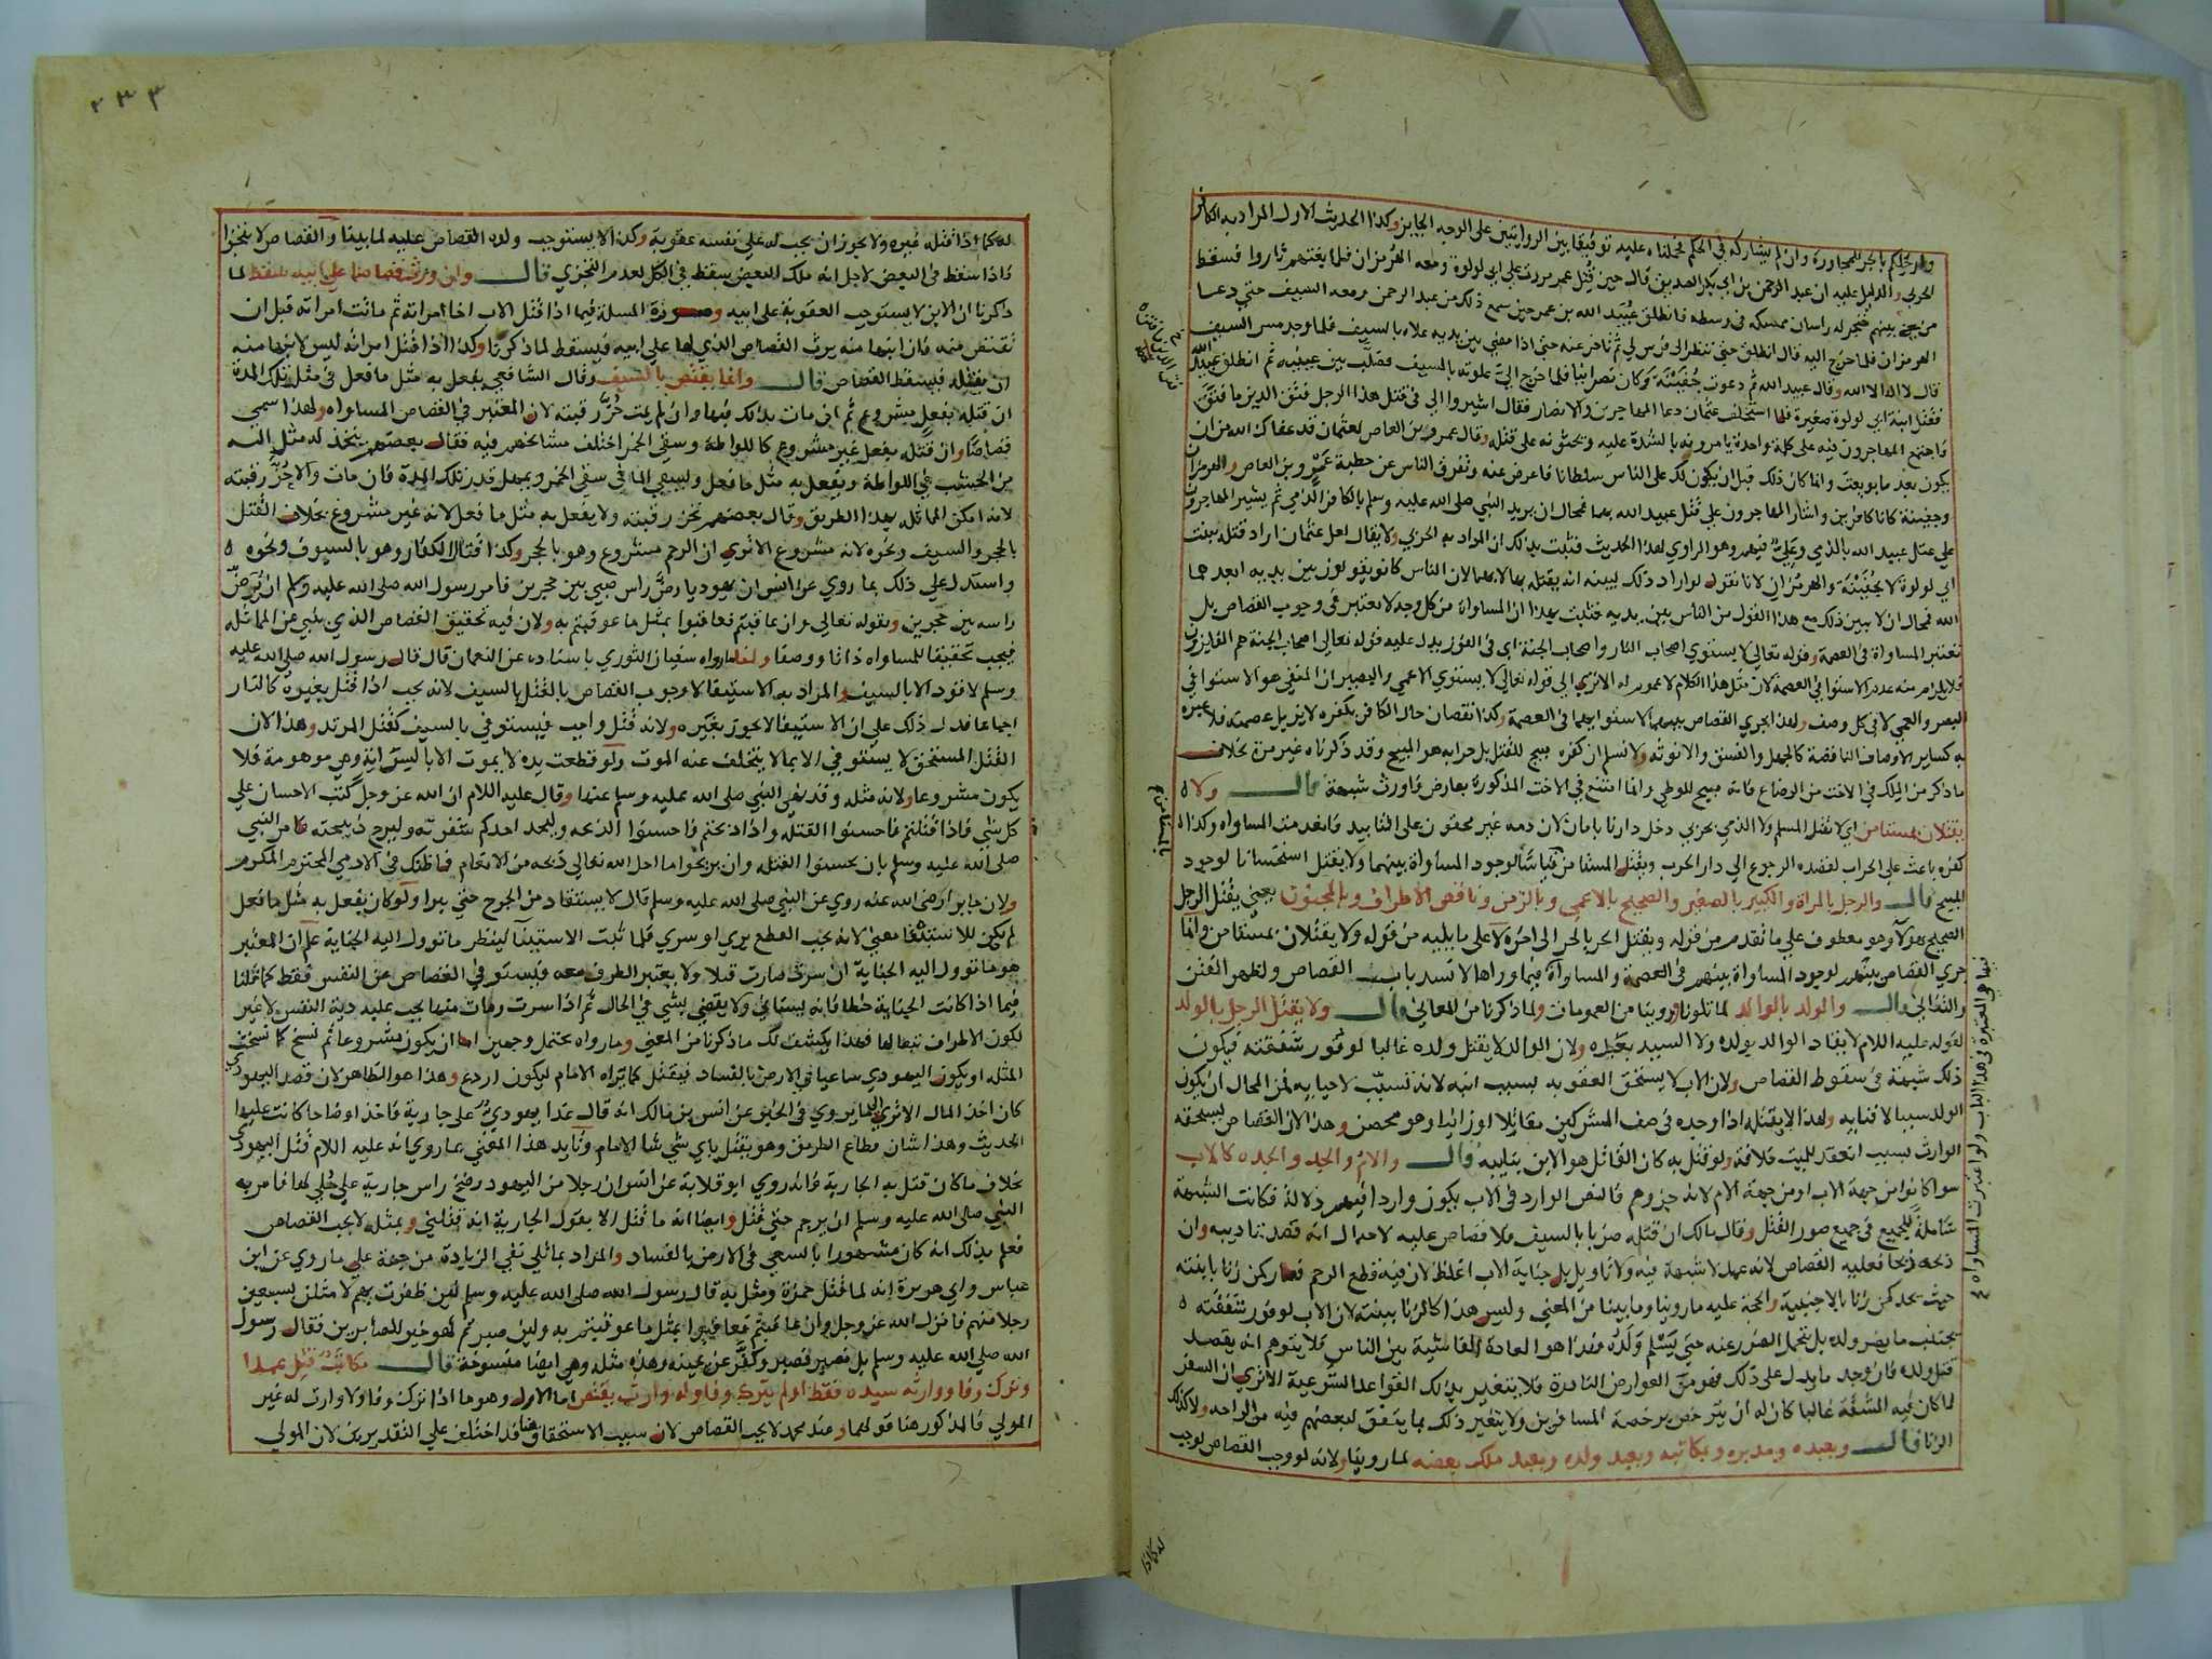 وارجلكم بالجر للمجاورة وان لم يشاركه في الحكم فحملناه عليه توفيقا بين الروايتين على الوجه الجايز وكذا الحديث الاول المراد به الكافر
الحربي والدليل عليه ان عبد الرحمن بن ابي بكر الصديق قال حين قتل عمر مررت على ابي لولوة ومعه الهرمزان فلما بغتهم ثاروا فسقط
من بينهم خنجر له راسان ممسكه في وسطه فانطلق عبيد الله بن عمر حين سمع ذلك من عبد الرحمن ومعه السيف حتى دعا
الهرمزان فلما خرج اليه قال انطلق حتى تنظر الى فرس لي ثم تاخر عنه حتى اذا مضى بين يديه علاه بالسيف فلما وجد مس السيف
قال لا اله الا الله وقال عبيد الله ثم دعوت جفينة وكان نصرانيا فلما خرج الي علوته بالسيف فصلب بين عينيه ثم انطلق عبيد الله
فقتل ابنة ابي لولوة صغيرة فلما استخلف عثمان دعا المهاجرين والانصار فقال اشيروا الي في قتل هذا الرجل فتق الدين ما فتق
فاجتمع المهاجرون فيه على كلمة واحدة يامرونه بالشدة عليه ويحثونه على قتله وقال عمرو بن العاص لعثمان قد عفاك الله من ان
يكون بعد ما بويعت وانما كان ذلك قبل ان يكون لك على الناس سلطانا فاعرض عنه وتفرق الناس عن خطبة عمرو بن العاص والهرمزان
وجفينة كانا كافرين واشار المهاجرون على قتل عبيد الله بهما فمحال ان يريد النبي صلى الله عليه وسلم بالكافر الذمي ثم يشير المهاجرون
على قتل عبيد الله بالذمي وعلي فيهم وهو الراوي لهذا الحديث فثبت بذلك ان المراد به الحربي ولا يقال لعل عثمان اراد قتله ببنت
ابي لولوة لا بجفينة والهرمزان لانا نقول لو اراد ذلك لبينه انه يقتله بها لا بهما لان الناس كانو يقولون بين يديه ابعدهما
الله فمحال ان لا يبين ذلك مع هذا القول من الناس بين يديه فثبت بهذا ان المساواة من كل وجه لا تعتبر في وجوب القصاص بل
تعتبر المساواة في العصمة وقوله تعالى لا يستوي اصحاب النار واصحاب الجنة اى في الفوز يدل عليه قوله تعالى اصحاب الجنة هم الفايزون
فلا يلزم منه عدم الاستوا في العصمة لان مثل هذا الكلام لا عموم له الا ترى الى قوله تعالى لا يستوي الاعمى والبصير ان المنفي هو الاستوا في
البصر والعمى لا في كل وصف ولهذا يجري القصاص بينهما لاستوايهما في العصمة وكذا نقصان حال الكافر بكفره لا يزيل عصمته فلا عبرة
به كساير الاوصاف الناقصة كالجهل والفسق والانوثة ولا نسلم ان كفره مبيح للقتل بل حرابه هو المبيح وقد ذكرناه غير مرة بخلاف
ما ذكر من الملك في الاخت من الرضاع فانه مبيح للوطي وانما امتنع في الاخت المذكورة بعارض فاورث شبهة قال ولا
يقتلان بمستامن اي لا يقتل المسلم ولا الذمي بحربي دخل دارنا بامان لان دمه غير محقون على التابيد فانعدمت المساواه وكذا
كفره باعث على الحراب لقصده الرجوع الى دار الحرب ويقتل المستامن قياسا لوجود المساواة بينهما ولا يقتل استحسانا لوجود
المبيح قال والرجل بالمراة والكبير بالصغير والصحيح بالاعمى وبالزمن وناقص الاطراف وبالمجنون يعني يقتل الرجل
الصحيح بهولا وهو معطوف على ما تقدم من قوله ويقتل الحر بالحر الى اخره لا على ما يليه من قوله ولا يقتلان بمستامن وانما
جري القصاص بينهم لوجود المساواة بينهم في العصمة والمساواة فيما وراها لا تسد باب القصاص ولظهر الفتن
والتفانى قال والولد بالوالد لما تلونا وروينا من العمومات ولما ذكرنا من المعاني قال ولا يقتل الرجل بالولد
لقوله عليه السلام لا يقاد الوالد بولده ولا السيد بعبده ولان الوالد لا يقتل ولده غالبا لوفور شفقته فيكون
ذلك شبهة في سقوط القصاص ولان الاب لا يستحق العقوبه بسبب ابنه لانه تسبب لاحيايه فمن المحال ان يكون
الولد سببا لافنايه ولهذا لا يقتله اذا وجده في صف المشركين مقاتلا او زانيا وهو محصن وهذا لان القصاص يستحقه
الوارث بسبب انعقد للميت خلافة ولو قتل به كان القاتل هو الابن بنايبه قال والام والجد والجده كالاب
سوا كانوا من جهة الاب او من جهة الام لانه جزوهم فالنص الوارد في الاب يكون واردا فيهم دلالة فكانت الشبهة
شاملة للجميع في جميع صور القتل وقال مالك ان قتله ضربا بالسيف فلا قصاص عليه لاحتمال انه قصد تاديبه وان
ذبحه ذبحا فعليه القصاص لانه عمد لا شبهة فيه ولا تاويل بل جناية الاب اغلظ لان فيه قطع الرحم فصار كمن زنا بابنته
حيث يحد كمن زنا بالاجنبية والحجة عليه ما روينا وما بينا من المعنى وليس هذا كالزنا ببنته لان الاب لوفور شفقته
يجتنب ما يضر ولده بل يتحمل الضرر عنه حتى يسلم ولده فهذا هو العادة الفاشية بين الناس فلا يتوهم انه يقصد
قتل ولده فان وجد ما يدل على ذلك فهو من العوارض النادرة فلا يتغير بذلك القواعد الشرعية الا ترى ان السفر
لما كان فيه المشقة غالبا كان له ان يترخص برخصة المسافرين ولا يتغير ذلك بما يتفق لبعضهم فيه من الراحه ولا كذلك
الزنا قال وبعبده ومدبره ومكاتبه وبعبد ولده وبعبد ملك بعضه لما روينا ولانه لو وجب القصاص لوجب
بالمستامن
فيها والعبرة في هذا الباب ولو اعتبرت المساواه
له كما اذا
٢٣٣
له كما اذا قتله غيره ولا يجوز ان يجب له على نفسه عقوبة وكذا لا يستوجب ولده القصاص عليه لما بينا والقصاص لا يتجزا
فاذا سقط في البعض لاجل انه ملك البعض يسقط في الكل لعدم التجزي قال وان ورث قصاصا على ابيه سقط لما
ذكرنا ان الابن لا يستوجب العقوبة على ابيه وصورة المسلة فيما اذا قتل الاب اخا امراته ثم ماتت امراته قبل ان
تقتص منه فان ابنها منه يرث القصاص الذي لها على ابيه فيسقط لما ذكرنا وكذا اذا قتل امراته ليس لابنها منه
ان يقتله فيسقط القصاص قال وانما يقتص بالسيف وقال الشافعي يفعل به مثل ما فعل في مثل تلك المدة
ان قتله بفعل مشروع ثم ان مات بذلك فبها وان لم يمت حز رقبته لان المعتبر في القصاص المساواه ولهذا سمي
قصاصا وان قتله بفعل غير مشروع كاللواطة وسقي الخمر اختلف مشايخهم فيه فقال بعضهم يتخذ له مثل اله
من الخشب في اللواطة ويفعل به مثل ما فعل ويسقي الما في سقي الخمر ويمهل قدر تلك المدة فان مات والا حز رقبته
لانه امكن المماثله بهذا الطريق وقال بعضهم تحز رقبته ولا يفعل به مثل ما فعل لانه غير مشروع بخلاف القتل
بالحجر والسيف ونحوه لانه مشروع الا ترى ان الرجم مشروع وهو بالحجر وكذا قتال الكفار وهو بالسيوف ونحوه
واستدل على ذلك بما روي عن انس ان يهوديا رض راس صبي بين حجرين فامر رسول الله صلى الله عليه وسلم ان يرض
راسه بين حجرين وبقوله تعالى وان عاقبتم فعاقبوا بمثل ما عوقبتم به ولان فيه تحقيق القصاص الذي ينبي عن المماثله
فيجب تحقيقا للمساواه ذاتا ووصفا ولنا ما رواه سفيان الثوري باسناده عن النعمان قال قال رسول الله صلى الله عليه
وسلم لا قود الا بالسيف والمراد به الاستيفا لا وجوب القصاص بالقتل بالسيف لانه يجب اذا قتل بغيره كالنار
اجماعا فدل ذلك على ان الاستيفا لا يجوز بغيره ولانه قتل واجب فيستوفي بالسيف كقتل المرتد وهذا لان
القتل المستحق لا يستوفي الا بما لا يتخلف عنه الموت ولو قطعت يده لا يموت الا بالسراية وهي موهومة فلا
يكون مشروعا ولانه مثله وقد نهى النبي صلى الله عليه وسلم عنها وقال عليه السلام ان الله عز وجل كتب الاحسان على
كل شي فاذا قتلتم فاحسنوا القتله واذا ذبحتم فاحسنوا الذبحه وليحد احدكم شفرته وليرح ذبيحته فامر النبي
صلى الله عليه وسلم بان يحسنوا القتله وان يريحوا ما احل الله تعالى ذبحه من الانعام فما ظنك في الادمي المحترم المكرم
ولان جابرا رضى الله عنه روي عن النبي صلى الله عليه وسلم قال لا يستقاد من الجرح حتى يبرا ولو كان يفعل به مثل ما فعل
لم يكن للاستيفا معنى لانه يجب القطع بري او سري فلما ثبت الاستينا لينظر ما تؤول اليه الجناية علم ان المعتبر
هو ما تؤول اليه الجناية ان سرت صارت قتلا ولا يعتبر الطرف معه فيستوفي القصاص من النفس فقط كما قلنا
فيما اذا كانت الجناية خطا فانه يستاني ولا يقضي بشي في الحال ثم اذا سرت ومات منها يجب عليه دية النفس لا غير
لكون الاطراف تبعا لها فهذا يكشف لك ما ذكرنا من المعنى وما رواه يحتمل وجهين اما ان يكون مشروعا ثم نسخ كما نسخت
المثله او يكون اليهودي ساعيا في الارض بالفساد فيقتل كما يراه الامام ليكون اردع وهذا هو الظاهر لان قصد اليهودي
كان اخذ المال الا ترى الى ما يروي في الخبر عن انس بن مالك انه قال عدا يهودي على جارية فاخذ اوضاحا كانت عليها
الحديث وهذا شان قطاع الطريق وهو يقتل باي شي شا الامام وتايد هذا المعنى بما روي انه عليه السلام قتل اليهودي
بخلاف ما كان قتل به الجارية فانه روي ابو قلابة عن انس ان رجلا من اليهود رضخ راس جارية على حلي لها فامر به
النبي صلى الله عليه وسلم ان يرجم حتى قتل وايضا انه ما قتل الا بقول الجارية انه قتلني وبمثله لا يجب القصاص
فعلم بذلك انه كان مشهورا بالسعي في الارض بالفساد والمراد بما تلي نفي الزيادة من جهة على ما روي عن ابن
عباس وابي هريرة انه لما قتل حمزة ومثل به قال رسول الله صلى الله عليه وسلم لئن ظفرت بهم لامثلن بسبعين
رجلا منهم فانزل الله عز وجل وان عاقبتم فعاقبوا بمثل ما عوقبتم به ولئن صبرتم لهو خير للصابرين فقال رسول
الله صلى الله عليه وسلم بل نصبر فصبر وكفر عن يمينه وهذه مثله وهي ايضا منسوخة قال مكاتب قتل عمدا
وترك وفا ووارثه سيده فقط او لم يترك وفا وله وارث يقتص اما الاول وهو ما اذا ترك وفا ولا وارث له غير
المولي فالمذكور هنا قولهما وعند محمد لا يجب القصاص لان سبب الاستحقاق هنا قد اختلف على التقديرين لان المولي